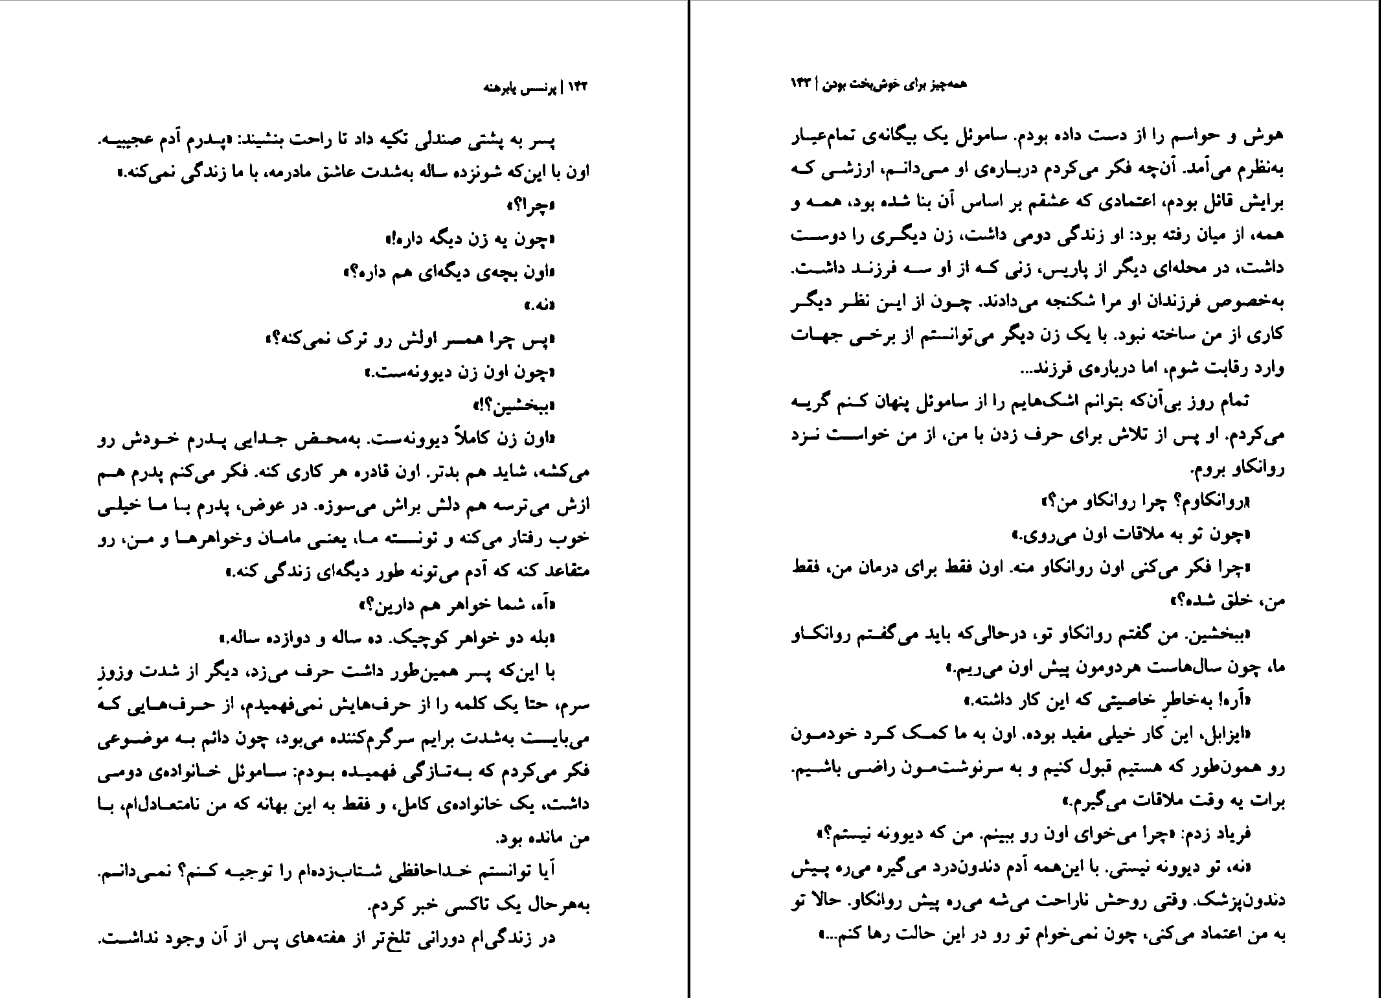 ۱۴۲ | پرنسس پابرهنه
پسر به پشتی صندلی تکیه داد تا راحت بنشیند: «پدرم آدم عجیبیه.
اون با این‌که شونزده ساله به‌شدت عاشق مادرمه، با ما زندگی نمی‌کنه.»
«چرا؟»
«چون یه زن دیگه داره!»
«اون بچه‌ی دیگه‌ای هم داره؟»
«نه.»
«پس چرا همسر اولش رو ترک نمی‌کنه؟»
«چون اون زن دیوونه‌ست.»
«ببخشین؟!»
«اون زن کاملاً دیوونه‌ست. به‌محض جدایی پدرم خودش رو
می‌کشه، شاید هم بدتر. اون قادره هر کاری کنه. فکر می‌کنم پدرم هم
ازش می‌ترسه هم دلش براش می‌سوزه. در عوض، پدرم با ما خیلی
خوب رفتار می‌کنه و تونسته ما، یعنی مامان وخواهرها و من، رو
متقاعد کنه که آدم می‌تونه طور دیگه‌ای زندگی کنه.»
«آه، شما خواهر هم دارین؟»
«بله دو خواهر کوچیک. ده ساله و دوازده ساله.»
با این‌که پسر همین‌طور داشت حرف می‌زد، دیگر از شدت وزوزِ
سرم، حتا یک کلمه را از حرف‌هایش نمی‌فهمیدم، از حرف‌هایی که
می‌بایست به‌شدت برایم سرگرم‌کننده می‌بود، چون دائم به موضوعی
فکر می‌کردم که به‌تازگی فهمیده بودم: ساموئل خانواده‌ی دومی
داشت، یک خانواده‌ی کامل، و فقط به این بهانه که من نامتعادل‌ام، با
من مانده بود.
آیا توانستم خداحافظی شتاب‌زده‌ام را توجیه کنم؟ نمی‌دانم.
به‌هرحال یک تاکسی خبر کردم.
در زندگی‌ام دورانی تلخ‌تر از هفته‌های پس از آن وجود نداشت.
همه‌چیز برای خوش‌بخت بودن | ۱۴۳
هوش و حواسم را از دست داده بودم. ساموئل یک بیگانه‌ی تمام‌عیار
به‌نظرم می‌آمد. آن‌چه فکر می‌کردم درباره‌ی او می‌دانم، ارزشی که
برایش قائل بودم، اعتمادی که عشقم بر اساس آن بنا شده بود، همه و
همه، از میان رفته بود: او زندگی دومی داشت، زن دیگری را دوست
داشت، در محله‌ای دیگر از پاریس، زنی که از او سه فرزند داشت.
به‌خصوص فرزندان او مرا شکنجه می‌دادند. چون از این نظر دیگر
کاری از من ساخته نبود. با یک زن دیگر می‌توانستم از برخی جهات
وارد رقابت شوم، اما درباره‌ی فرزند...
تمام روز بی‌آن‌که بتوانم اشک‌هایم را از ساموئل پنهان کنم گریه
می‌کردم. او پس از تلاش برای حرف زدن با من، از من خواست نزد
روانکاو بروم.
«روانکاوم؟ چرا روانکاو من؟»
«چون تو به ملاقات اون می‌روی.»
«چرا فکر می‌کنی اون روانکاو منه. اون فقط برای درمان من، فقط
من، خلق شده؟»
«ببخشین. من گفتم روانکاو تو، درحالی‌که باید می‌گفتم روانکاو
ما، چون سال‌هاست هردومون پیش اون می‌ریم.»
«آره! به‌خاطرِ خاصیتی که این کار داشته.»
«ایزابل، این کار خیلی مفید بوده. اون به ما کمک کرد خودمون
رو همون‌طور که هستیم قبول کنیم و به سرنوشت‌مون راضی باشیم.
برات یه وقت ملاقات می‌گیرم.»
فریاد زدم: «چرا می‌خوای اون رو ببینم. من که دیوونه نیستم؟»
«نه، تو دیوونه نیستی. با این‌همه آدم دندون‌درد می‌گیره می‌ره پیش
دندون‌پزشک. وقتی روحش ناراحت می‌شه می‌ره پیش روانکاو. حالا تو
به من اعتماد می‌کنی، چون نمی‌خوام تو رو در این حالت رها کنم...»